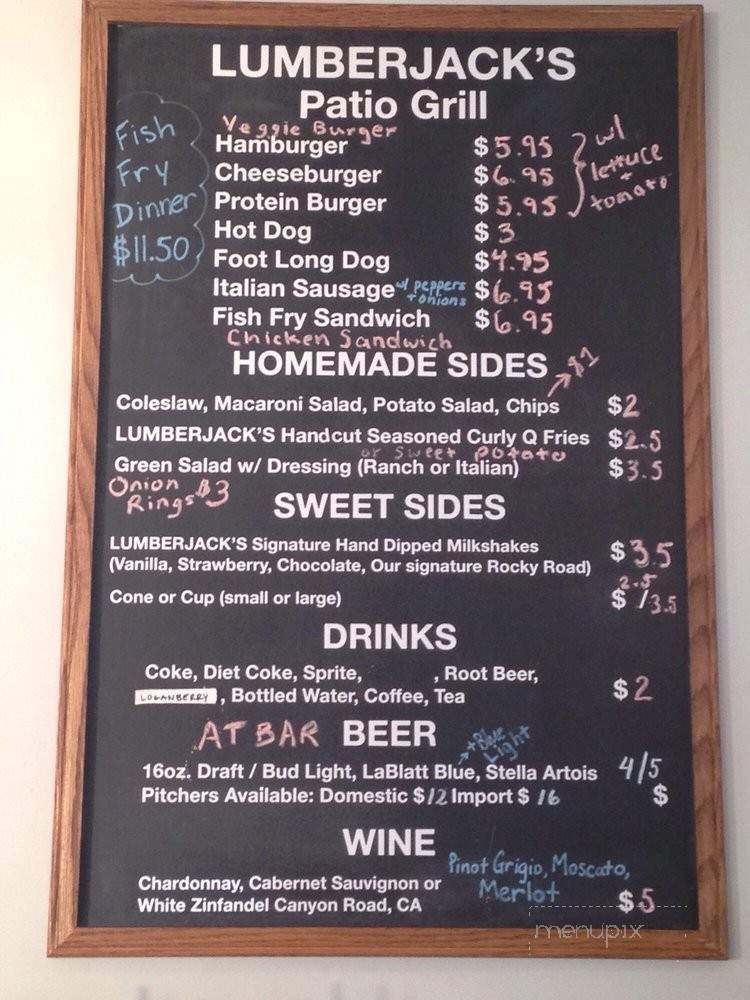 LUMBERJACK'S
Patio Grill
Fish
Fry
Dinner
$11.50
Veggie Burger
Hamburger $5.95
Cheeseburger $6.95
Protein Burger $5.95
w/
lettuce
+
tomato
Hot Dog $3
Foot Long Dog $4.95
Italian Sausage w/ peppers + onions $6.95
Fish Fry Sandwich $6.95
Chicken Sandwich
HOMEMADE SIDES
$1
Coleslaw, Macaroni Salad, Potato Salad, Chips $2
LUMBERJACK'S Handcut Seasoned Curly Q Fries $2.5
or Sweet Potato
Green Salad w/ Dressing (Ranch or Italian) $3.5
Onion
Rings $3
SWEET SIDES
LUMBERJACK'S Signature Hand Dipped Milkshakes
(Vanilla, Strawberry, Chocolate, Our signature Rocky Road) $3.5
Cone or Cup (small or large) $2.5/3.5
DRINKS
Coke, Diet Coke, Sprite, , Root Beer,
LOGANBERRY, Bottled Water, Coffee, Tea $2
AT BAR BEER
+ Blue
Light
16oz. Draft / Bud Light, LaBlatt Blue, Stella Artois 4/5
Pitchers Available: Domestic $12 Import $ 16 $
WINE
Pinot Grigio, Moscato,
Merlot
Chardonnay, Cabernet Sauvignon or
White Zinfandel Canyon Road, CA $5
menupix